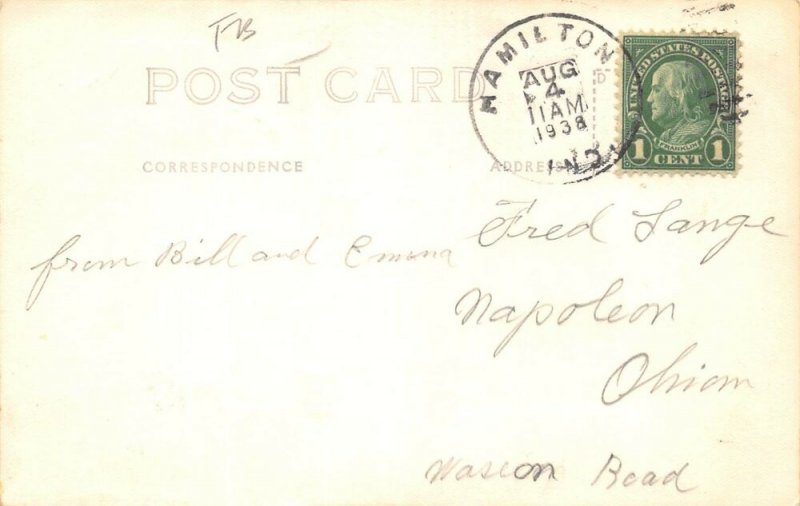 POST CARD
HAMILTON
AUG
4
11AM
1938
IND.
UNITED STATES POSTAGE
FRANKLIN
1 CENT 1
CORRESPONDENCE
ADDRESS
from Bill and Emma
Fred Lange
Napoleon
Ohiom
Waseon Road